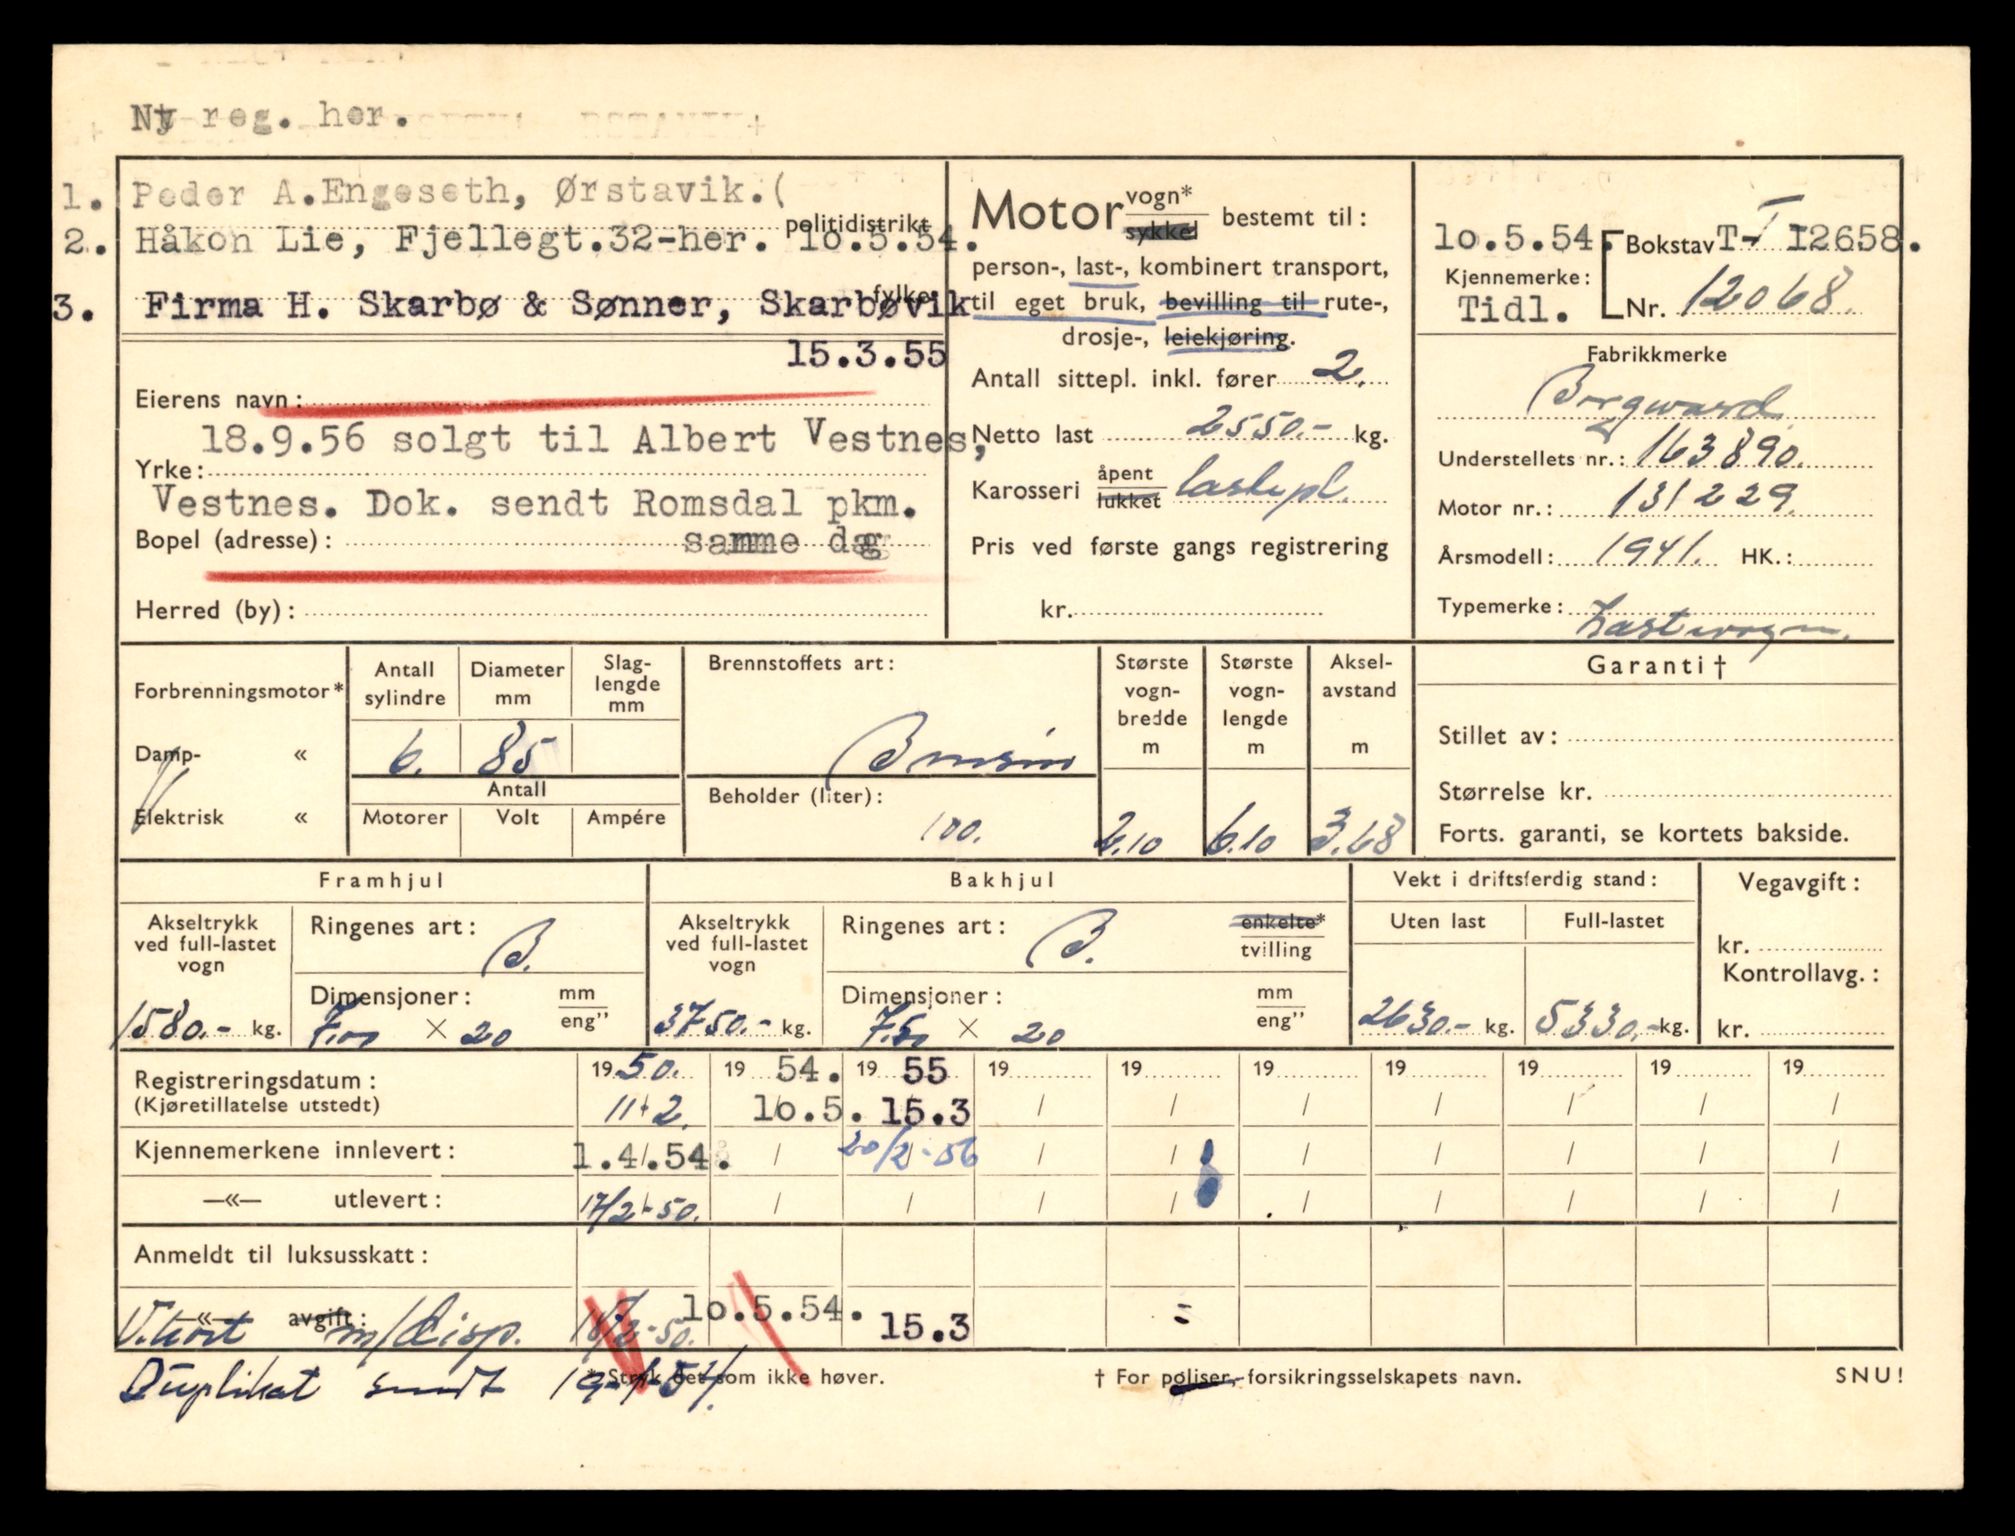 Ny reg. her.
1. Peder A.Engeseth, Ørstavik.(
politidistrikt
2. Håkon Lie, Fjellegt.32-her. 10.5.54.
fylke
3. Firma H. Skarbø & Sønner, Skarbøvik
15.3.55
Eierens navn:
18.9.56 solgt til Albert Vestnes,
Yrke:
Vestnes. Dok. sendt Romsdal pkm.
Bopel (adresse): samme dag
Herred (by):
Motor vogn* sykkel bestemt til:
person-, last-, kombinert transport,
til eget bruk, bevilling til rute-,
drosje-, leiekjøring.
Antall sittepl. inkl. fører 2.
Netto last 2550.- kg.
Karosseri åpent lukket lastepl.
Pris ved første gangs registrering
kr.
10.5.54. Bokstav T- T 12658.
Kjennemerke:
Tidl. Nr. 12068.
Fabrikkmerke
Borgward
Understellets nr.: 163890.
Motor nr.: 131229.
Årsmodell: 1941. HK.:
Typemerke: Lastvogn.
Forbrenningsmotor*
Damp- «
Elektrisk «
Antall sylindre Diameter mm Slag-lengde mm
6. 85
Antall
Motorer Volt Ampére
Brennstoffets art:
Bensin
Beholder (liter):
100.
Største vogn-bredde m Største vogn-lengde m Aksel-avstand m
2.10 6.10 3.68
Garanti †
Stillet av:
Størrelse kr.
Forts. garanti, se kortets bakside.
Framhjul
Akseltrykk ved full-lastet vogn
1580.- kg.
Ringenes art: B.
Dimensjoner: mm eng"
7.00 × 20
Bakhjul
Akseltrykk ved full-lastet vogn
3750.- kg.
Ringenes art: B. enkelte* tvilling
Dimensjoner: mm eng"
7.50 × 20
Vekt i driftsferdig stand:
Uten last Full-lastet
2630.- kg. 5330.- kg.
Vegavgift:
kr.
Kontrollavg.:
kr.
Registreringsdatum: 19 50. 19 54. 19 55 19 19 19 19 19 19 19
(Kjøretillatelse utstedt) 11/2. 10.5. 15.3 / / / / / / /
Kjennemerkene innlevert: 1.4.54. / 20/2-56 / / / / / / /
—«— utlevert: 17/2-50. / / / / / / / / /
Anmeldt til luksusskatt:
—«— avgift: 10.5.54.
V.kort m/disp. 18/2-50. 15.3 =
Duplikat sendt
* Stryk det som ikke høver.
† For poliser, forsikringsselskapets navn.
SNU!